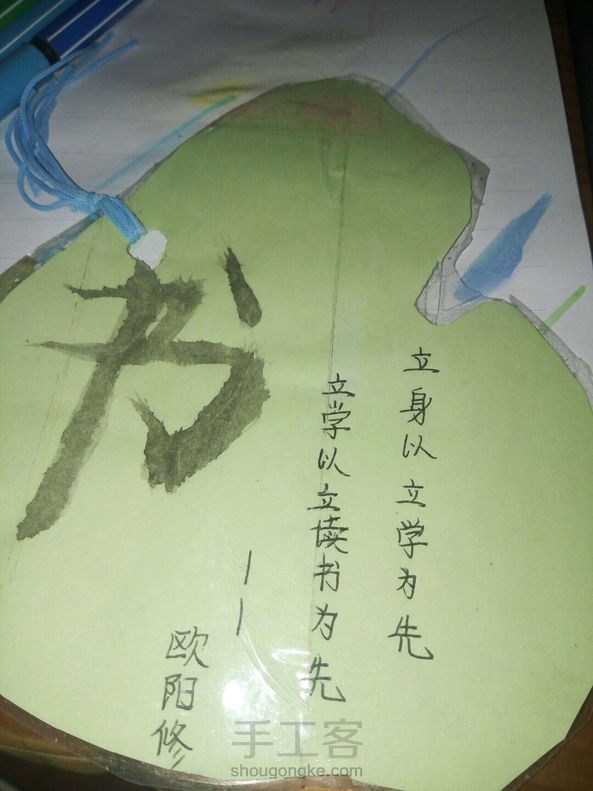 书
立身以立学为先
立学以立读书为先
——
欧阳修
手工客
shougongke.com